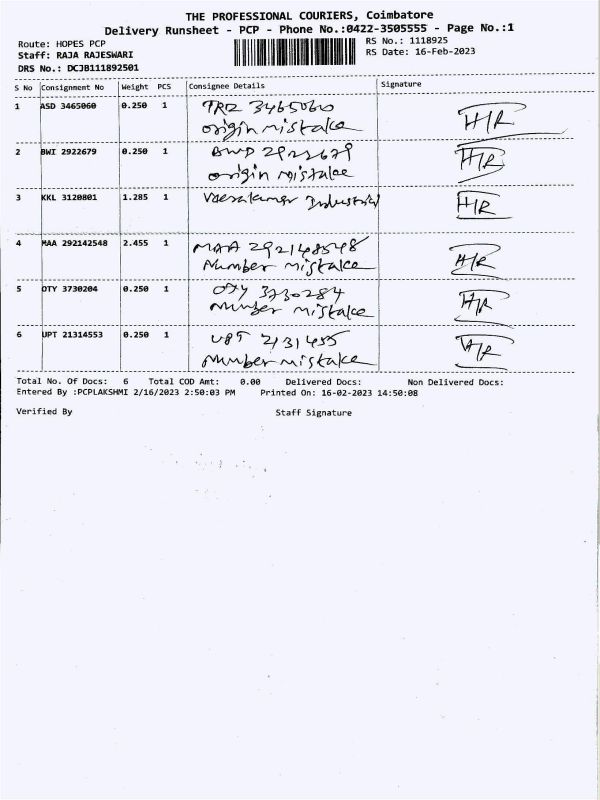 THE PROFESSIONAL COURIERS, Coimbatore
Delivery Runsheet - PCP - Phone No.:0422-3505555 - Page No.:1
Route: HOPES PCP
RS No.: 1118925
Staff: RAJA RAJESWARI
RS Date: 16-Feb-2023
DRS No.: DCJB111892501
S No Consignment No Weight PCS Consignee Details Signature
1 ASD 3465060 0.250 1 TRZ 3465060 H/R
origin mistake
2 BWI 2922679 0.250 1 BWD 2922679 H/R
origin mistake
3 KKL 3120801 1.285 1 Veerakumar Industrial H/R
4 MAA 292142548 2.455 1 MAA 292148548 H/R
Number mistake
5 OTY 3730204 0.250 1 OTY 3730284 H/R
Number mistake
6 UPT 21314553 0.250 1 UPT 2131455 H/R
Number mistake
Total No. Of Docs: 6 Total COD Amt: 0.00 Delivered Docs: Non Delivered Docs:
Entered By :PCPLAKSHMI 2/16/2023 2:50:03 PM Printed On: 16-02-2023 14:50:08
Verified By Staff Signature